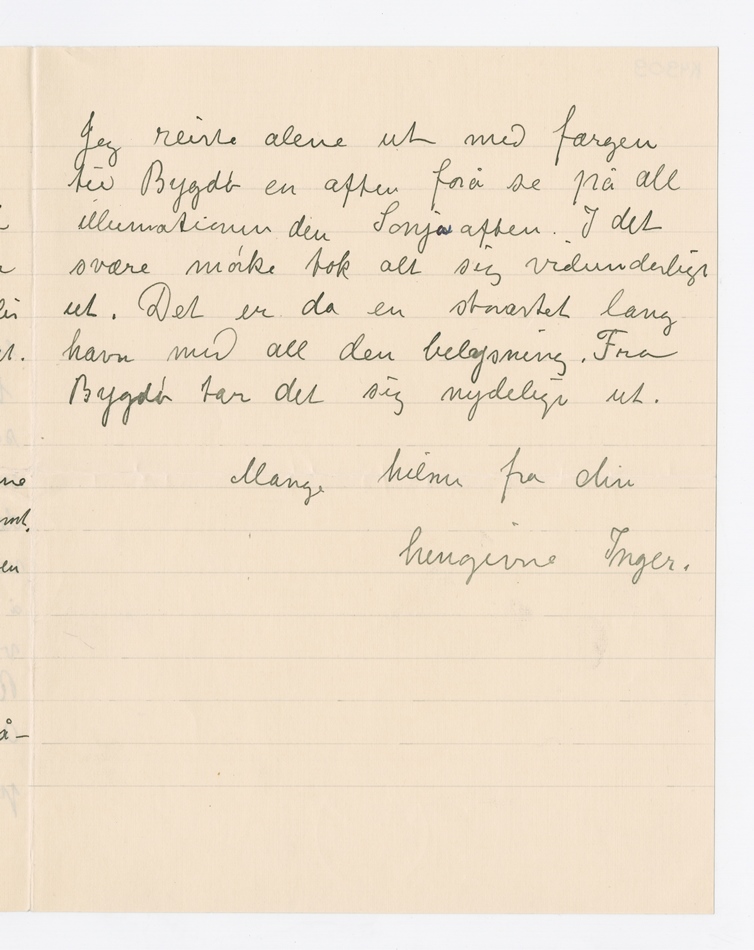 Jeg reiste alene ut med færgen
til Bygdö en aften forå se på all
illumationen den Sonja aften. I det
svære mörke tok alt sig vidunderligt
ut. Det er da en storartet lang
havn med all den belysning. Fra
Bygdö tar det sig nydeligt ut.
Mange hilsner fra din
hengivne Inger.